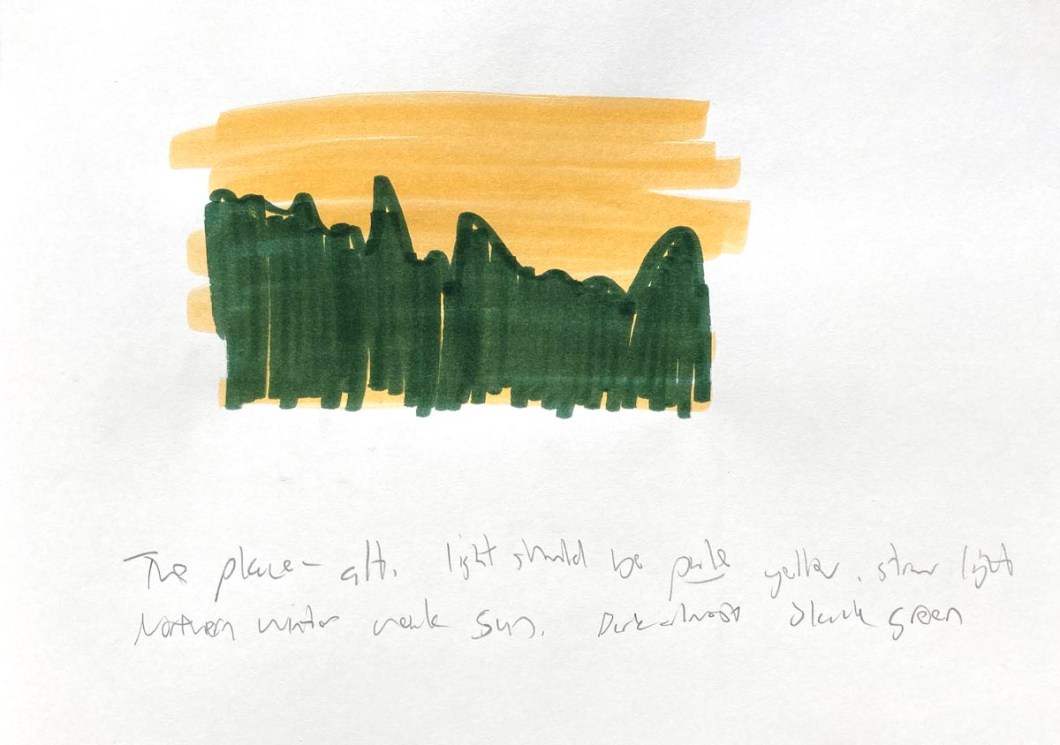 The place - alt. light should be pale yellow. straw light
Northern winter weak sun. Dark almost black green